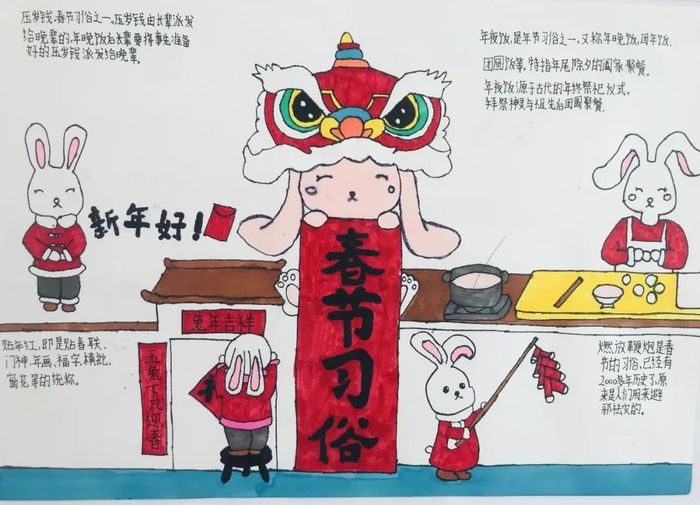 压岁钱,春节习俗之一。压岁钱由长辈派发
给晚辈的,年晚饭后长辈要将事先准备
好的压岁钱派发给晚辈。
年夜饭,是年节习俗之一,又称年晚饭,团年饭、
团圆饭等,特指年尾除夕的阖家聚餐。
年夜饭源于古代的年终祭祀仪式,
拜祭神灵与祖先后团圆聚餐。
新年好!
春节习俗
兔年吉祥
玉兔下凡迎春
贴年红,即是贴春联、
门神、年画、福字、横批、
窗花等的统称。
燃放鞭炮是春
节的习俗,已经有
2000多年历史了,原
来是人们用来避
邪祛灾的。